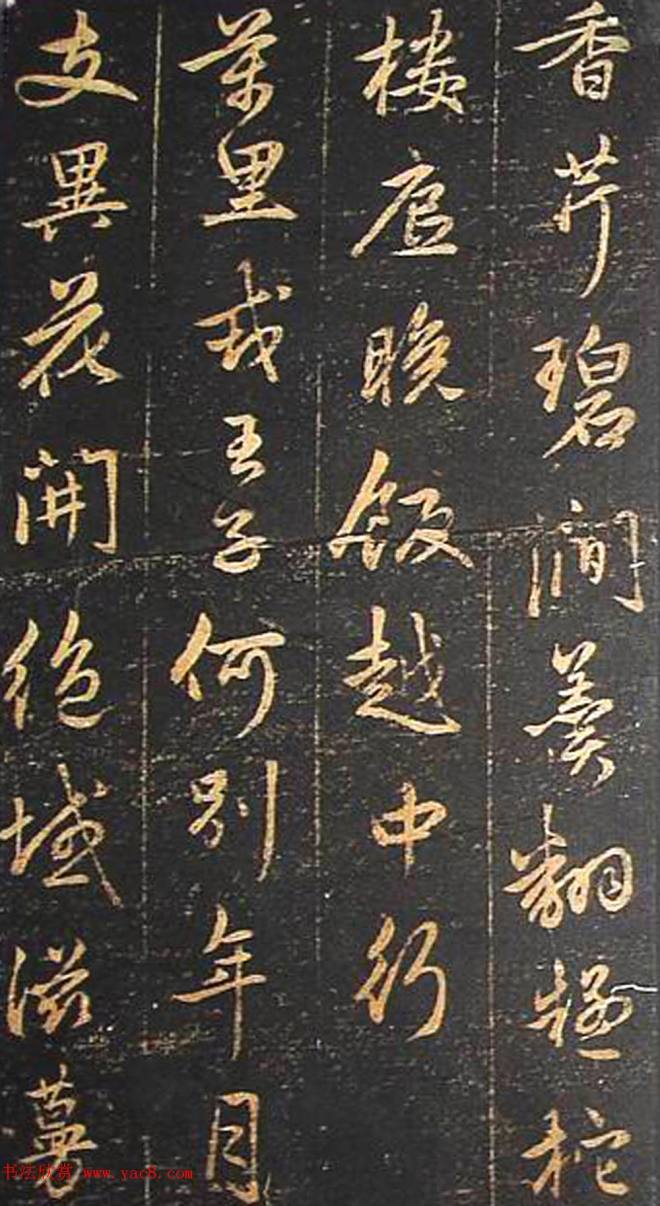 香芹碧澗羹翻疑柂
樓底晚飯越中行
萬里戎王子何別年月
支異花開絕域滋蔓
书法欣赏 www.yac8.com